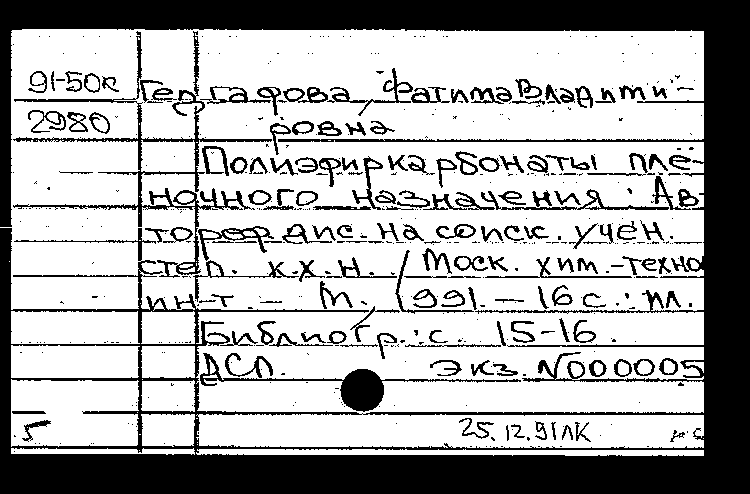 91-50к Гергафова, Фатима Владими-
2980 ровна
Полиэфиркарбонаты плё-
ночного назначения : Ав-
тореф. дис. на соиск. учен.
степ. к.х.н. / Моск. хим.-техно
ин-т. - М., 1991. - 16 с. : ил.
Библиогр.: с. 15-16.
ДСП. Экз. N000005
5 25.12.91 ЛК